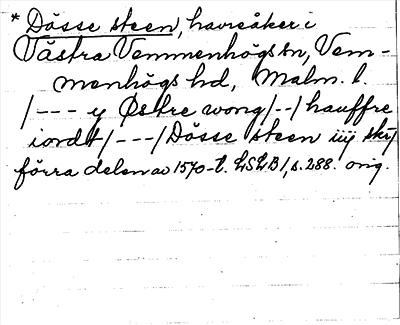 * Dösse steen, havreåker i
Västra Vemmenhögs sn, Vem-
menhögs hd, Malm. l.
/--- y Østre wong/--/hauffre
iordt/---/Dösse steen iiij skr/
förra delen av 1570-t. LSLB1, s. 288. orig.